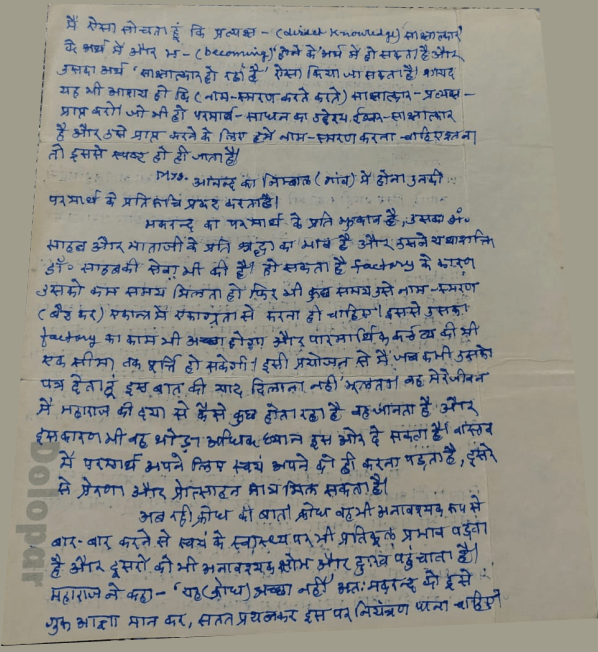 मैं ऐसा सोचता हूं कि प्रत्यक्ष - (direct knowledge) साक्षात्कार
के अर्थ में और भ - (becoming) होने के अर्थ में हो सकता है और
उसका अर्थ 'साक्षात्कार हो रहा है' ऐसा किया जा सकता है। शायद
यह भी आशय हो कि (नाम-स्मरण करते करते) साक्षात्कार - प्रत्यक्ष -
प्राप्त करो। जो भी हो परमार्थ - साधन का उद्देश्य ईश्वर-साक्षात्कार
है और उसे प्राप्त करने के लिए हमें नाम-स्मरण करना चाहिए इतना
तो इससे स्पष्ट हो ही जाता है।
Mrs. आनन्द का निम्बाल (गांव) में होना उनकी
परमार्थ के प्रति रुचि प्रकट करता है।
मकरन्द का परमार्थ के प्रति झुकाव है, उसका डॉ॰
साहब और माताजी के प्रति श्रद्धा का भाव है और उसने यथाशक्ति
डॉ॰ साहबकी सेवा भी की है। हो सकता है factory के कारण
उसको कम समय मिलता हो फिर भी कुछ समय उसे नाम-स्मरण
(बैठ कर) एकान्त में एकाग्रता से करना ही चाहिए। इससे उसका
factory का काम भी अच्छा होगा और पारमार्थिक कर्तव्य की भी
एक सीमा तक पूर्ति हो सकेगी। इसी प्रयोजन से मैं जब कभी उसको
पत्र देता हूं इस बात की याद दिलाना नहीं भूलता। वह मेरे जीवन
में महाराज की दया से कैसे कुछ होता रहा है वह जानता है और
इस कारण भी वह थोड़ा अधिक ध्यान इस ओर दे सकता है। वास्तव
में परमार्थ अपने लिए स्वयं अपने को ही करना पड़ता है, दूसरे
से प्रेरणा और प्रोत्साहन मात्र मिल सकता है।
अब रही क्रोध की बात। क्रोध वह भी अनावश्यक रूप से
बार-बार करने से स्वयं के स्वास्थ्य पर भी प्रतिकूल प्रभाव पड़ता
है और दूसरों को भी अनावश्यक क्षोभ और दुःख पहुंचाता है।
महाराज ने कहा - 'यह (क्रोध) अच्छा नहीं' अतः मकरन्द को इसे
गुरु आज्ञा मान कर, सतत प्रयत्नकर इस पर नियंत्रण पाना चाहिए।
Dolopar